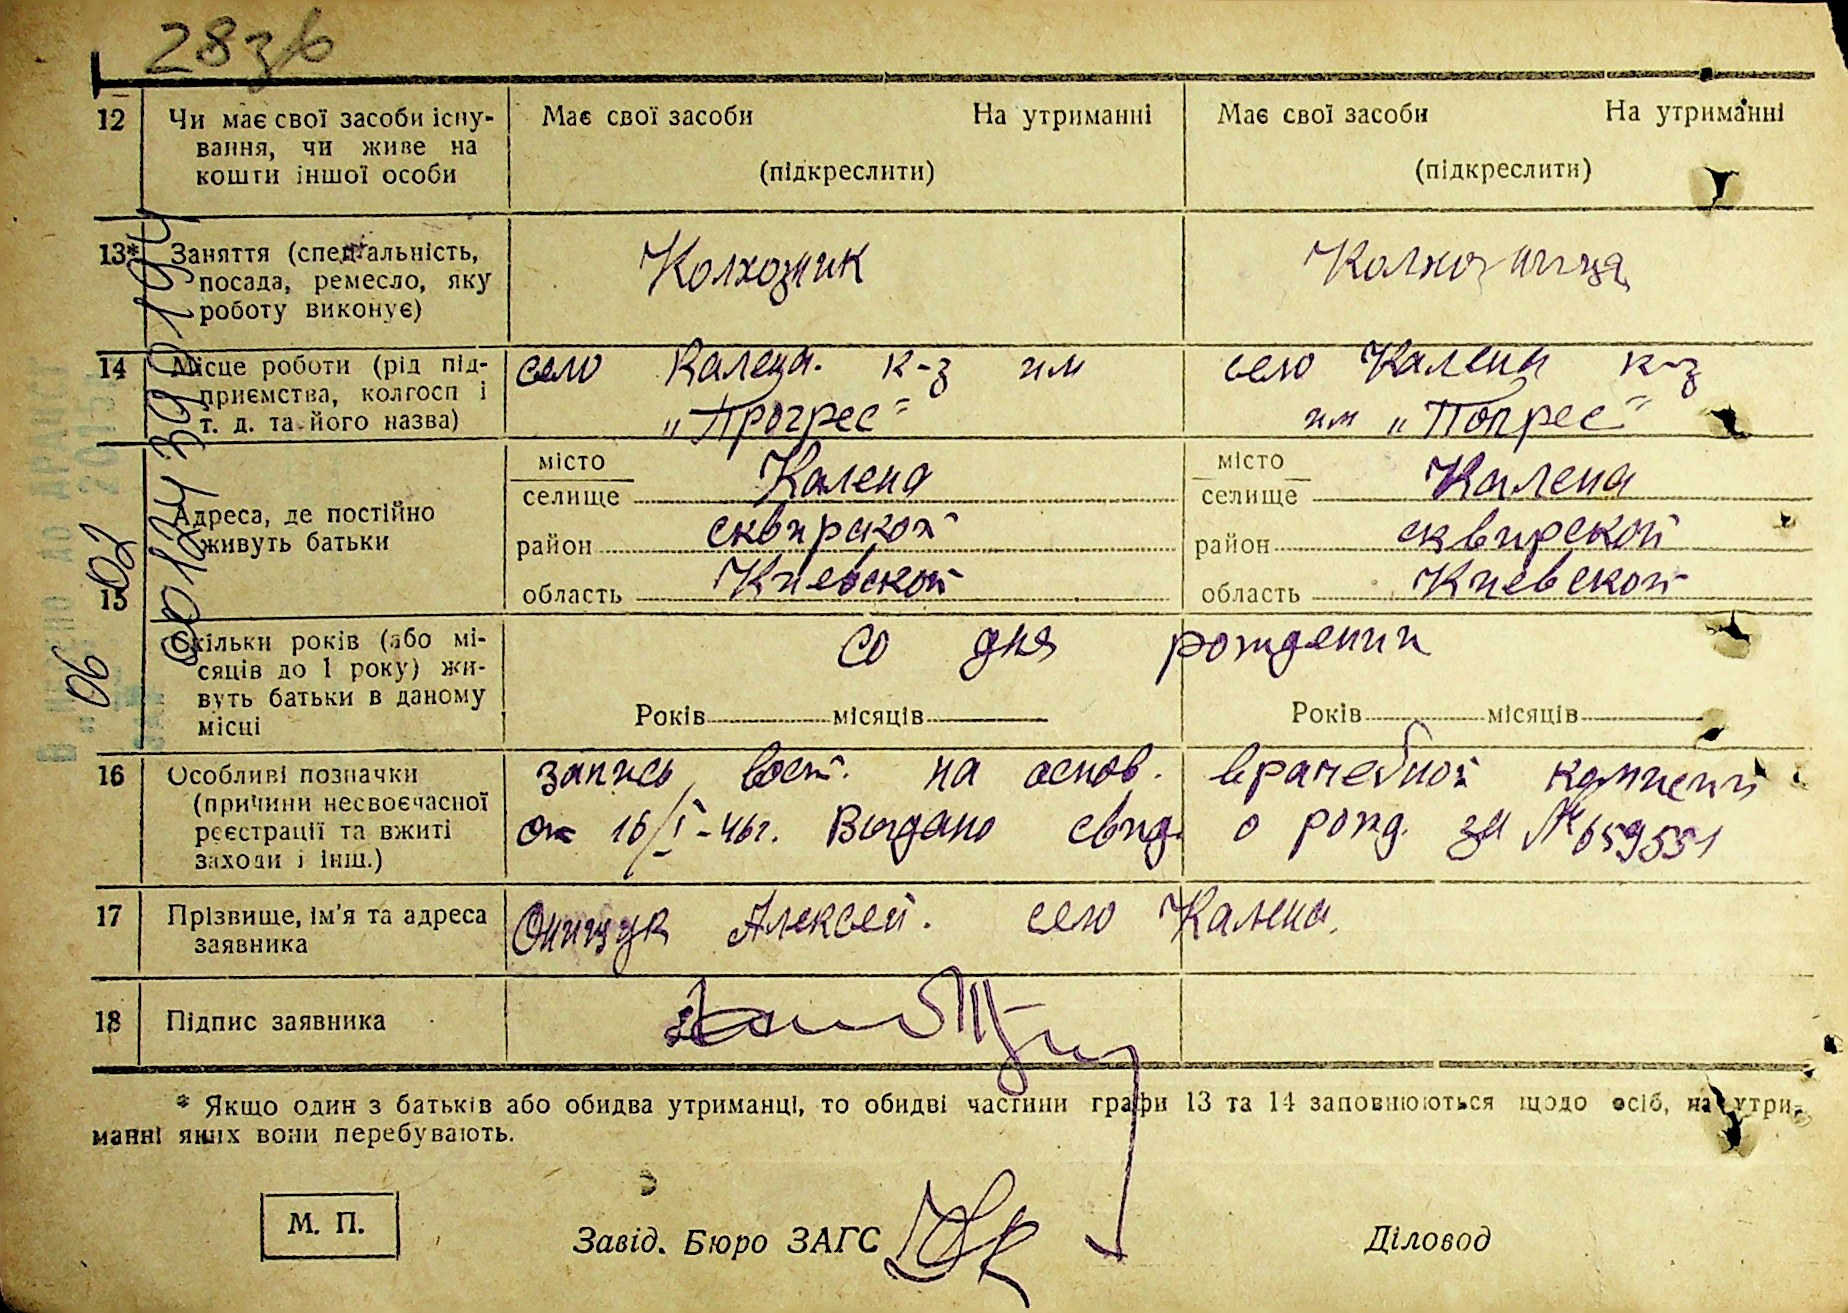 28зв
12 Чи має свої засоби існу- Має свої засоби На утриманні Має свої засоби На утриманні
вання, чи живе на
кошти іншої особи (підкреслити) (підкреслити)
13* Заняття (спеціальність, Колхозник Колхозница
посада, ремесло, яку
роботу виконує)
14 Місце роботи (рід під- село Калена. к-з им село Калена к-з
приємства, колгосп і „Прогрес" им „Попрес"
т. д. та його назва)
місто Калена місто Калена
селище селище
15 Адреса, де постійно район сквирской район сквирской
живуть батьки
область Киевской область Киевской
Скільки років (або мі- со дня рождении
сяців до 1 року) жи-
вуть батьки в даному Років місяців Років місяців
місці
16 Особливі позначки запись вост. на основ. врачебной комисии
(причини несвоєчасної
реєстрації та вжиті от 16/I-46г. Выдано свид. о рожд. за № 659551
заходи і інш.)
17 Прізвище, ім'я та адреса Онищук Алексей. село Калена.
заявника
18 Підпис заявника
* Якщо один з батьків або обидва утриманці, то обидві частини графи 13 та 14 заповнюються щодо осіб, на утри-
манні яких вони перебувають.
М. П. Завід. Бюро ЗАГС Діловод
06 02